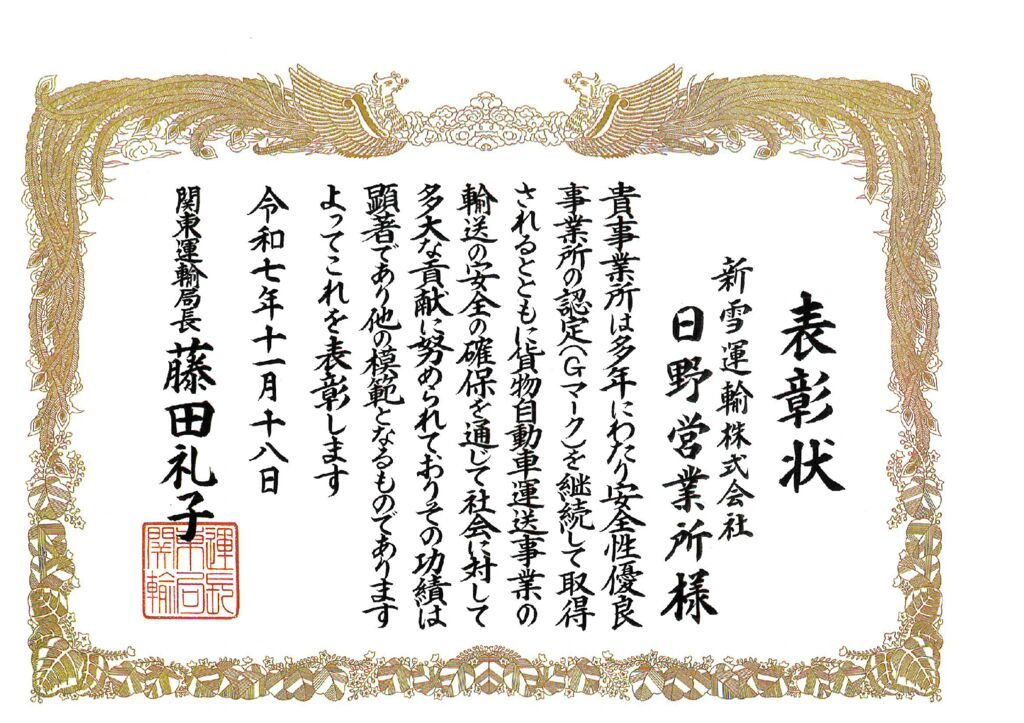 表彰状
新雪運輸株式会社
日野営業所様
貴事業所は多年にわたり安全性優良
事業所の認定(Gマーク)を継続して取得
されるとともに貨物自動車運送事業の
輸送の安全の確保を通じて社会に対して
多大な貢献に努められておりその功績は
顕著であり他の模範となるものであります
よってこれを表彰します
令和七年十一月十八日
関東運輸局長 藤田礼子
運長
東局
関輸